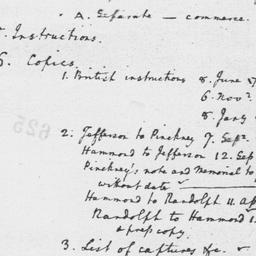 A. Separate — commerce.
Instructions.
6. Copies.
1. British instructions 8. June
6. Novr.
8. Jany
2. Jefferson to Pinckney 7. Sep.
Hammond to Jefferson 12. Sep
Pinckney's note and Memorial to
without date
Hammond to Randolph 11. Ap
Randolph to Hammond 1.
a press copy.
3. List of captures &c.